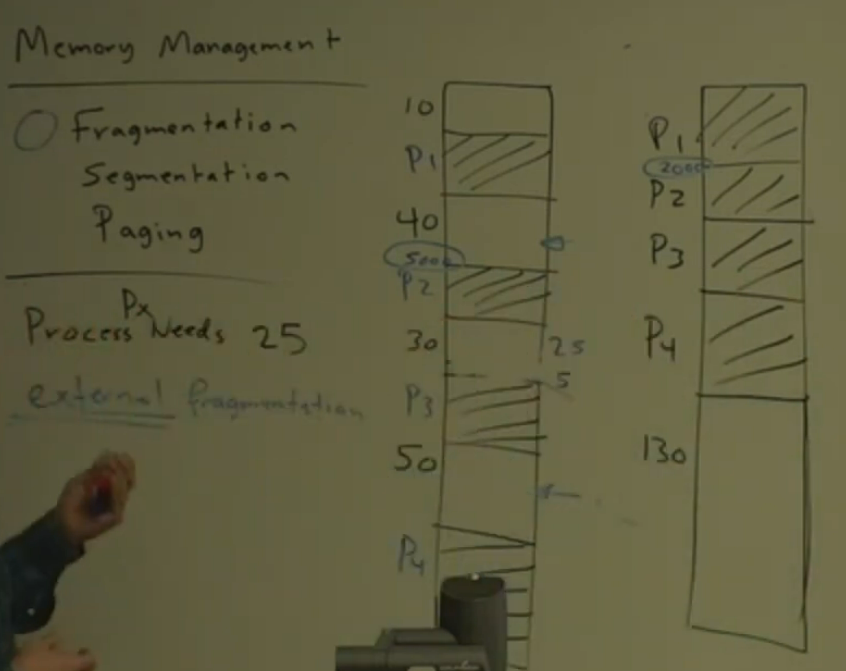 Memory Management
Fragmentation
Segmentation
Paging
Px
Process Needs 25
external fragmentation
10
P1
40
5000
P2
30
25
5
P3
50
P4
P1
2000
P2
P3
P4
130